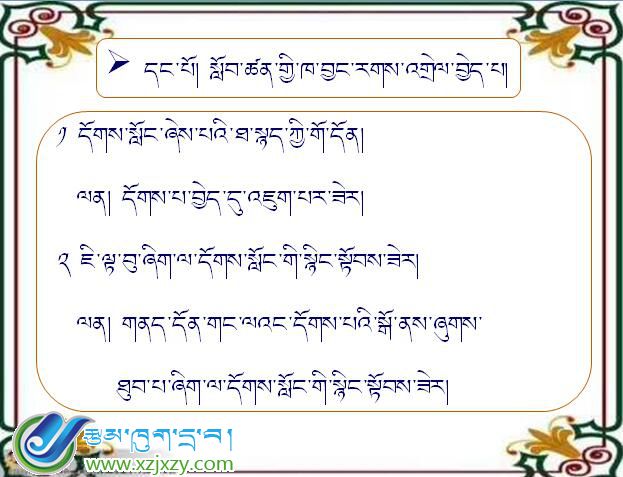 དང་པོ། སློབ་ཚན་གྱི་ཁ་བྱང་རགས་འགྲེལ་བྱེད་པ།
༡ དོགས་སློང་ཞེས་པའི་ཐ་སྙད་ཀྱི་གོ་དོན།
ལན། དོགས་པ་བྱེད་དུ་འཇུག་པར་ཟེར།
༢ ཇི་ལྟ་བུ་ཞིག་ལ་དོགས་སློང་གི་སྙིང་སྟོབས་ཟེར།
ལན། གནད་དོན་གང་ལའང་དོགས་པའི་སྒོ་ནས་ཞུགས་
ཐུབ་པ་ཞིག་ལ་དོགས་སློང་གི་སྙིང་སྟོབས་ཟེར།
རྩམ་ཁུག་དྲ་བ།
www.xzjxzy.com